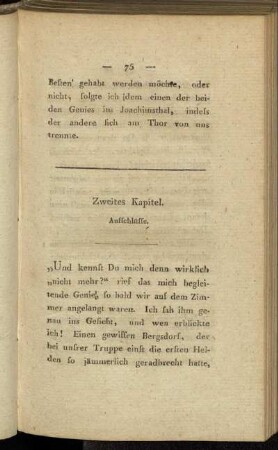 — 75 —
Beſten' gehabt werden möchte, oder
nicht, folgte ich dem einen der bei-
den Genies ins Joachimsthal, indeſs
der andere ſich am Thor von uns
trennte.
Zweites Kapitel.
Aufſchlüſſe.
„Und kennſt Du mich denn wirklich
„nicht mehr?“ rief das mich beglei-
tende Genie, ſo bald wir auf dem Zim-
mer angelangt waren. Ich ſah ihm ge-
nau ins Geſicht, und wen erblickte
ich! Einen gewiſſen Bergsdorf, der
bei unſrer Truppe einſt die erſten Hel-
den ſo jämmerlich geradbrecht hatte,